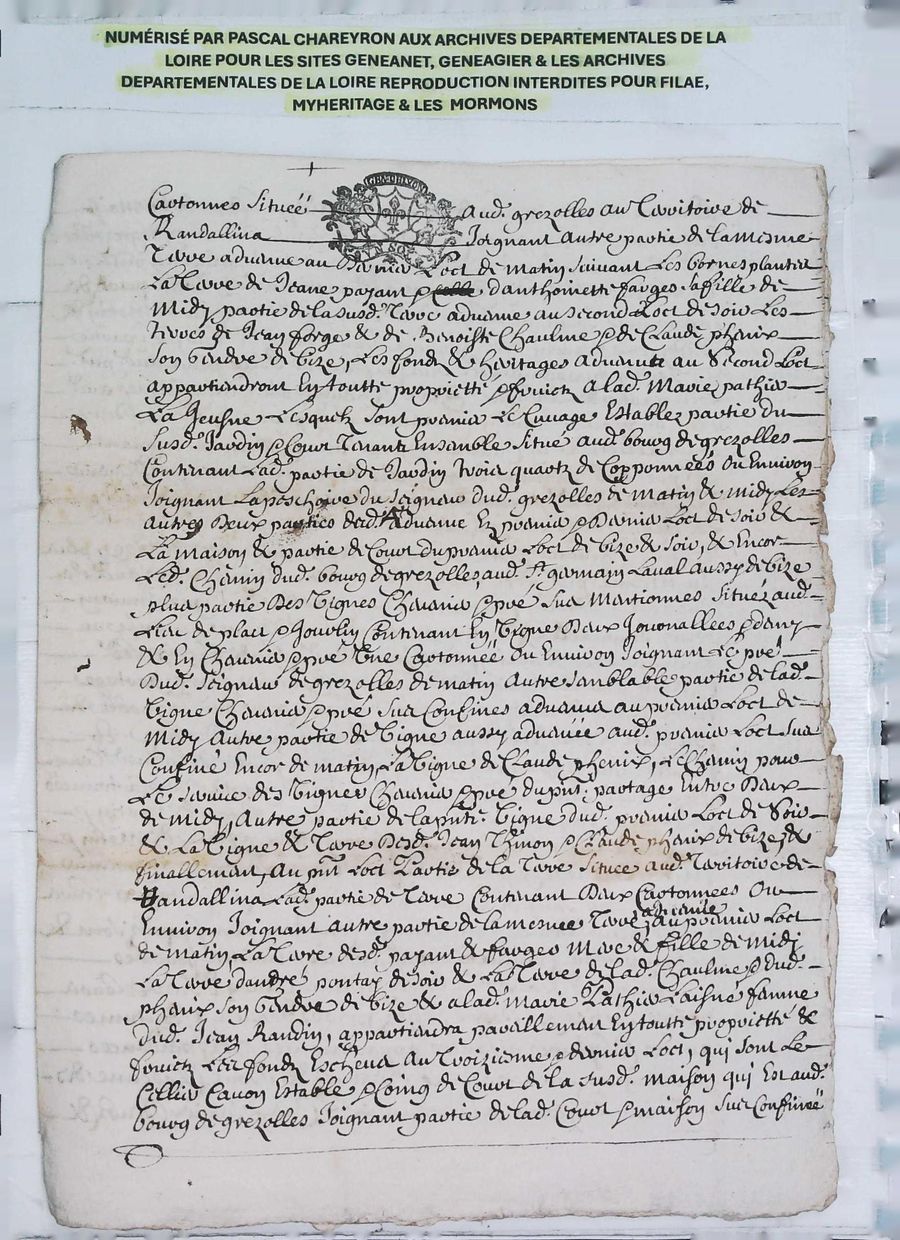 NUMÉRISÉ PAR PASCAL CHAREYRON AUX ARCHIVES DEPARTEMENTALES DE LA
LOIRE POUR LES SITES GENEANET, GENEAGIER & LES ARCHIVES
DEPARTEMENTALES DE LA LOIRE REPRODUCTION INTERDITES POUR FILAE,
MYHERITAGE & LES MORMONS
GRA·D·LYON
Cartonnes Situeé aud. grezolles au Tervitoire de
Randallina Joignant autre partie de la mesme
Terre advenue au Dernier Loct de matin suivant Les bornes plantées
La Terre de Jeane pajant & d'anthoinette farges sa fille de
Midy partie de la susd. Terre advenue au second Loct de soir Les
terres de Jean forge & de Benoiste Chauline & de Claude phenix
son Gendre de bize, Les fondz & heritages advenus au Second Loct
appartiendront En toutte propriette & fruictz a lad. Marie pathier
La Jeusne Lesquelz sont premier Le Cuvage Establez partie du
Susd. Jardin & Court Tenant Ensemble Situé aud. bourg de grezolles
Contenant Lad. partie de Jardin trois quartz de Copponneés Ou Environ
Joignant La peschoire du Seigneur dud. grezolles de matin & midy Les
autres Deux parties dud. advenue Es premier & Dernier Loct de soir &
La maison & partie de Court du premier Loct de bize & soir, & Encor
Led. Chemin dud. bourg de grezolles aud. St. germain Laval aussy de bize
plus partie Des Vignes Chenevier & pré sus Mentionnes Situéz aud.
Lieu de & Contenant En Vigne Deux Journallees & demy
& En Chenevier & pré Une Cartonneé Ou Environ Joignant Le pré
Dud. Seigneur de grezolles de matin autre semblable partie de lad.
Vigne Chenevier & pré sus Confines advenus au premier Loct de
Midy Autre partie de Vigne aussy advenüe aud. premier Loct sus
Confiné Encor de matin, La Vigne de Claude phenix, Le Chemin pour
Le service des Vignes Chenevier & pré du pnt. partage Entre Deux
de midy, Autre partie de la pnte Vigne dud. premier Loct de Soir
& La Vigne & Terre Desd. Jean Thinon & Claude phenix de bize, &
finallement, Au pnt Loct Partie de la Terre Situeé aud. Tervitoire de
Randallina Lad. partie de Terre Contenant Deux Cartonnees Ou
Environ Joignant autre partie de la mesme Terre advenue au premier Loct
de matin La Terre desd. pajant & farges Mere & fille de midy
La Terre dandré pontay de soir & La Terre de lad. Chauline & dud.
phenix son Gendre de bize & a lad. marie Pathier Laisné femme
Dud. Jean Randin, appartiendra pareillement En toutte propriette &
fruictz Les fondz Escheus Au Troizieme & dernier Loct, qui sont Le
Cellier Cavon Estable & Coing de Court de la susd. maison qui Est aud.
bourg de grezolles Joignant partie de lad. Court & maison Sus Confineé